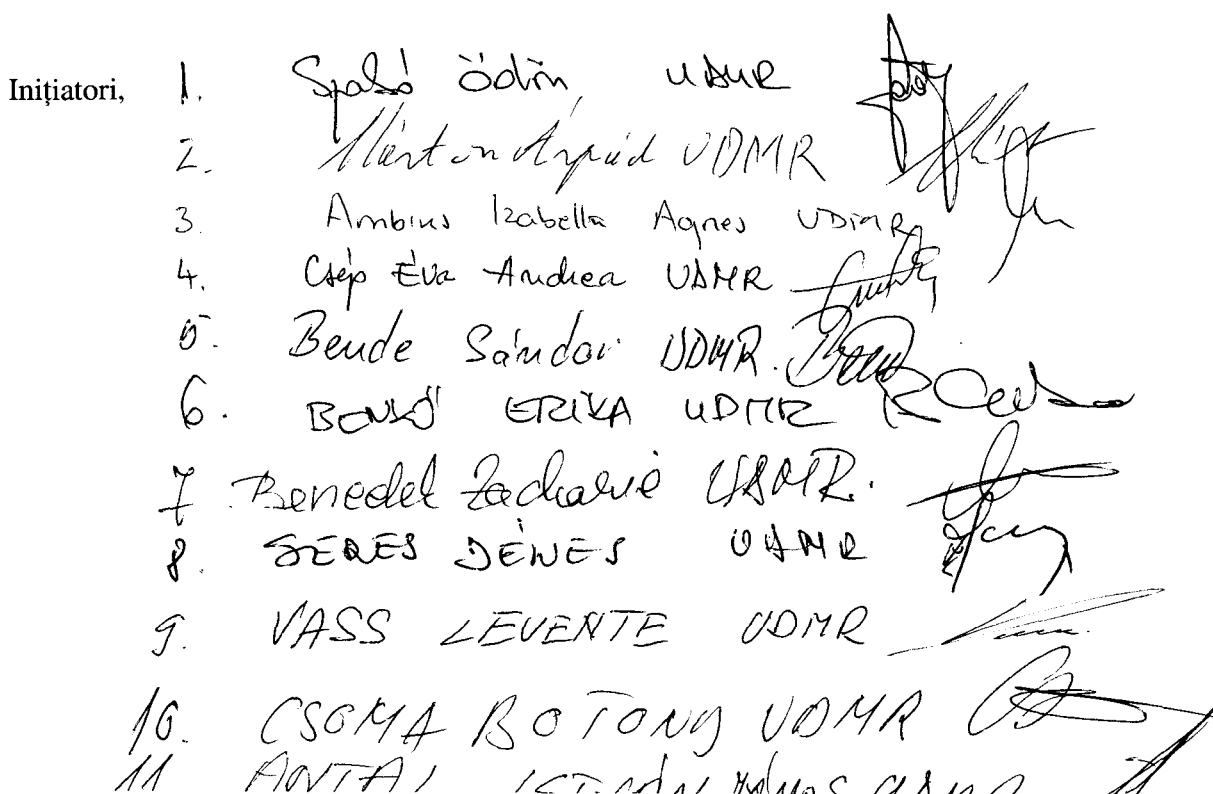 Inițiatori, 1. Szabó Ödön UDMR
2. Márton Árpád UDMR
3. Ambrus Izabella Agnes UDMR
4. Csép Éva Andrea UDMR
5. Bende Sándor UDMR.
6. BENKŐ ERIKA UDMR
7 Benedek Zacharie UDMR.
8. SERES DÉNES UDMR
9. VASS LEVENTE UDMR
10. CSOMA BOTOND UDMR
11 ANTAL ISTVÁN JÁNOS UDMR